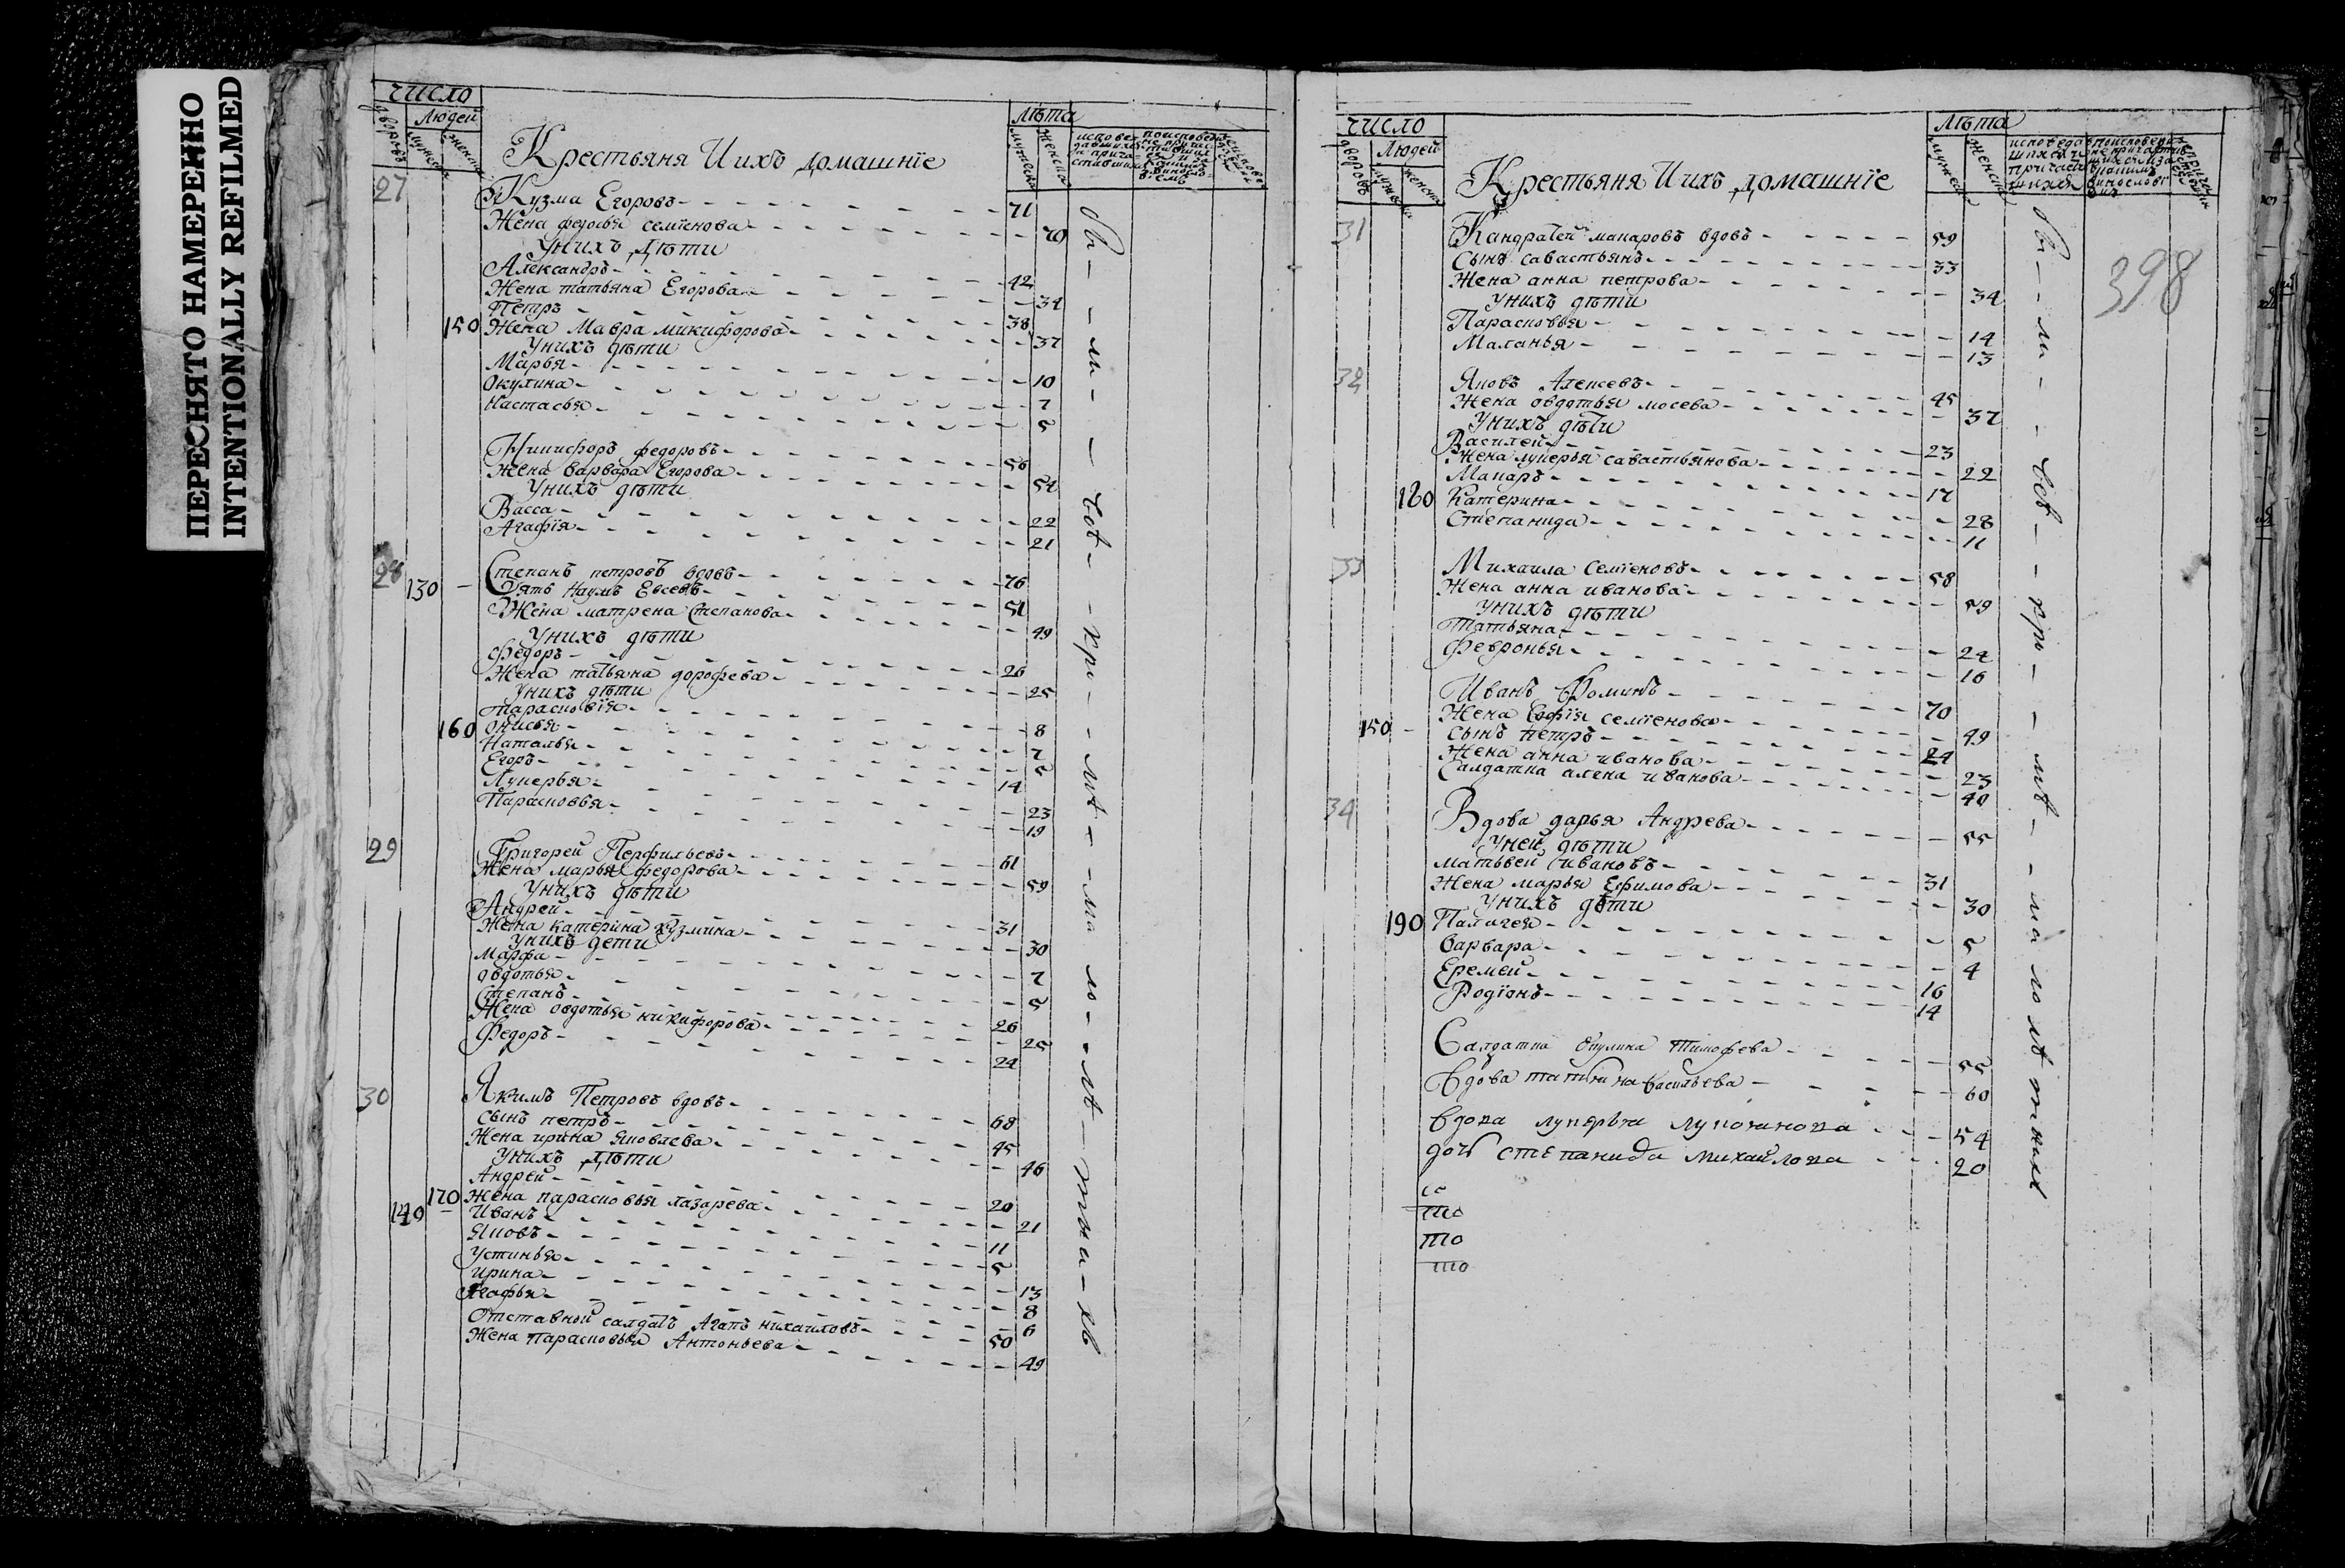 ПЕРЕСНЯТО НАМЕРЕННО
INTENTIONALLY REFILMED
число
людей
дворовъ
мужеска
женска
Крестьяня И ихъ домашнїе
лѣта
мужеска
женска
27
Кузма Егоровъ 71
Жена федосья семїенова 70
У нихъ дѣти
Александръ 42
Жена татьяна Егорова 34
Петръ 38
150 Жена Мавра микифорова 37
У нихъ дѣти
Марья 10
Окулина 7
Настасья 5
Никифоръ федоровъ 56
Жена варвара Егорова 54
У нихъ дѣти
Васса 22
Агафїя 21
28 Степанъ петровъ вдовъ 76
130 Зять Наумъ Евсеевъ 51
Жена матрена Степанова 49
У нихъ дѣти
Федоръ 26
Жена татьяна дорофева 25
У нихъ дѣти
Парасковїя 8
160 Онисья 7
Наталья 5
Егоръ 14
Лукерья 23
Парасковья 19
29 Григорей Перфильевъ 61
Жена марья федорова 59
У нихъ дѣти
Андрей 31
Жена катерина кузмина 30
У нихъ дети
Марфа 7
Овдотья 5
Степанъ 26
Жена Овдотья никифорова 25
Федоръ 24
30 Якимъ Петровъ вдовъ 68
Сынъ петръ 45
Жена ирина яковлева 46
У нихъ дѣти
Андрей 20
170 Жена парасковья лазарева 21
140 Иванъ 11
Яковъ 5
Устинья 13
Ирина 8
Агафья 6
Отставной салдатъ Агапъ михаиловъ 50
Жена парасковья Антоньева 49
число
людей
дворовъ
мужеска
женска
Крестьяня И ихъ домашнїе
лѣта
мужеска
женска
398
31 Кандратей макаровъ вдовъ 59
Сынъ савастьянъ 33
Жена анна петрова 34
У нихъ дѣти
Парасковья 14
Маланья 13
32 Яковъ Алексевъ 45
Жена овдотья мосева 37
У нихъ дѣти
Василей 23
Жена лукерья савастьянова 22
Макаръ 17
180 Катерина 28
Степанида 11
33 Михаила Семїеновъ 58
Жена анна иванова 59
У нихъ дѣти
Татьяна 24
Февронья 16
Иванъ Фоминъ 70
Жена Софїя семїенова 49
150 Сынъ петръ 24
Жена анна иванова 23
Салдатка алена иванова 40
34 Вдова дарья Андрева 55
У ней дѣти
Матьвей ивановъ 31
Жена марья Ефимова 30
У нихъ дѣти
190 Палагея 5
Варвара 4
Еремей 16
Родїонъ 14
Салдатка Окулина Тимофева 55
Вдова татьяна васильева 60
вдова лукерья лукоянова 54
дочь степанида михайлова 20
то
то
то